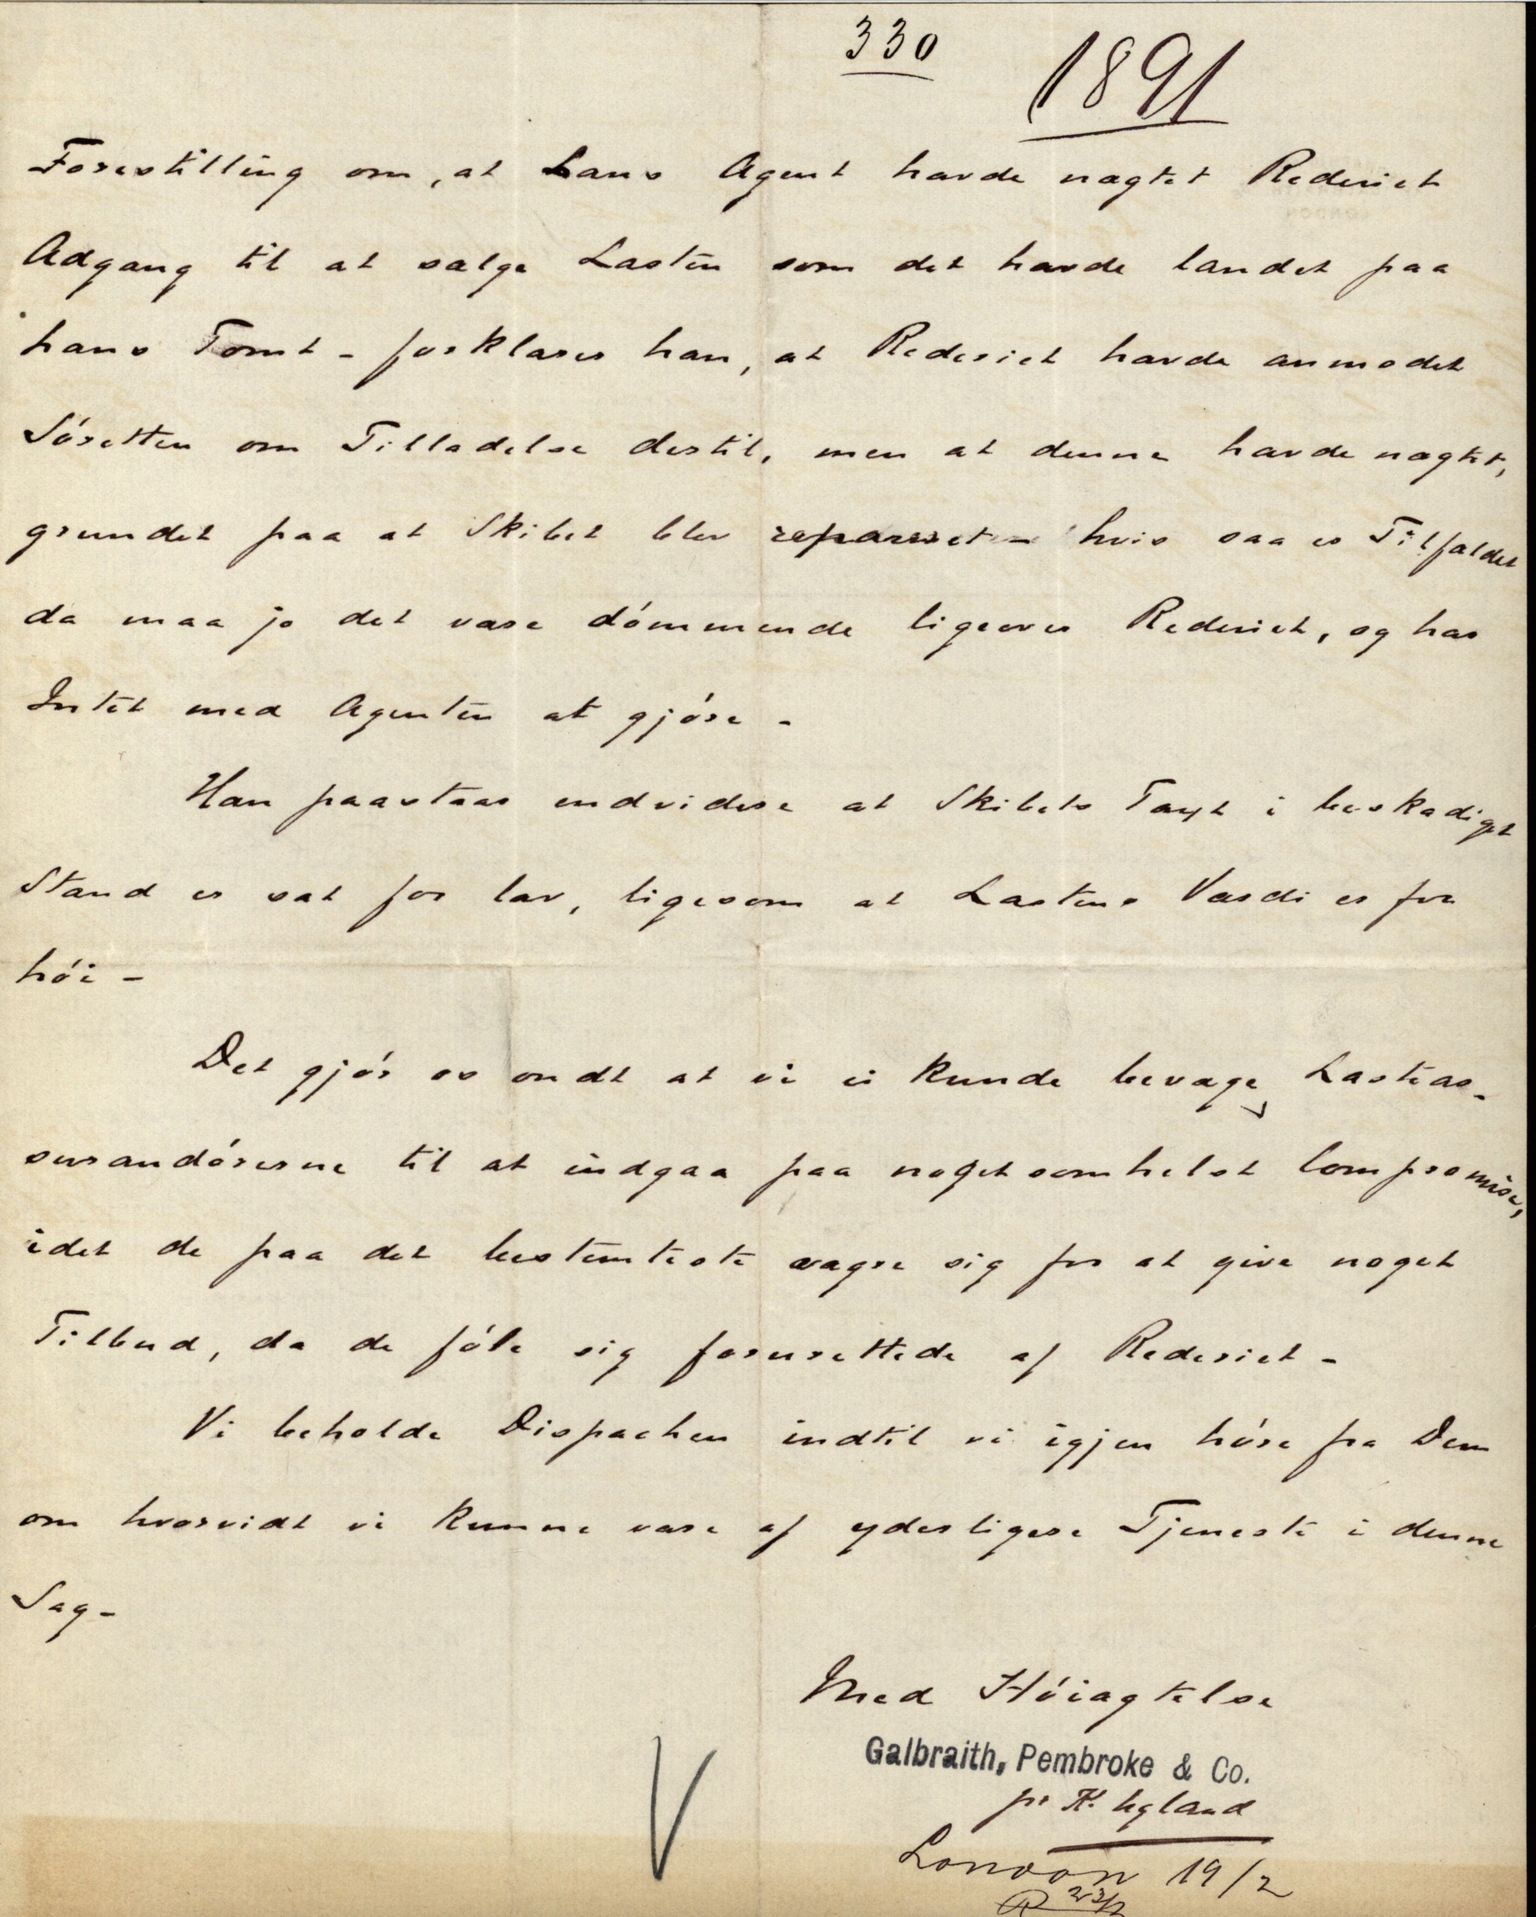 330
1891
Forestilling om, at hans Agent havde nægtet Rederiet
Adgang til at sælge Lasten som det havde landet paa
hans Tomt - forklarer han, at Rederiet havde anmodet
Söretten om Tilladelse dertil, men at denne havde nægtet,
grundet paa at Skibet blev repareret - hvis saa er Tilfældet
da maa jo det være dömmende ligeover Rederiet, og har
Intet med Agenten at gjöre -
Han paastaar endvidere at Skibets Taxt i beskadiget
Stand er sat for lav, ligesom at Lastens Værdi er for
höi -
Det gjör os ondt at vi ei kunde bevæge Lasteas-
surandörerne til at indgaa paa nogetsomhelst Compromise,
idet de paa det bestemteste vægre sig for at give noget
Tilbud, da de föle sig forurettede af Rederiet -
Vi beholde Dispachen indtil vi igjen höre fra Dem
om hvorvidt vi kunne være af yderligere Tjeneste i denne
Sag -
Med Höiagtelse
Galbraith, Pembroke & Co.
pr K. Egland
London 19/2
R 23/2